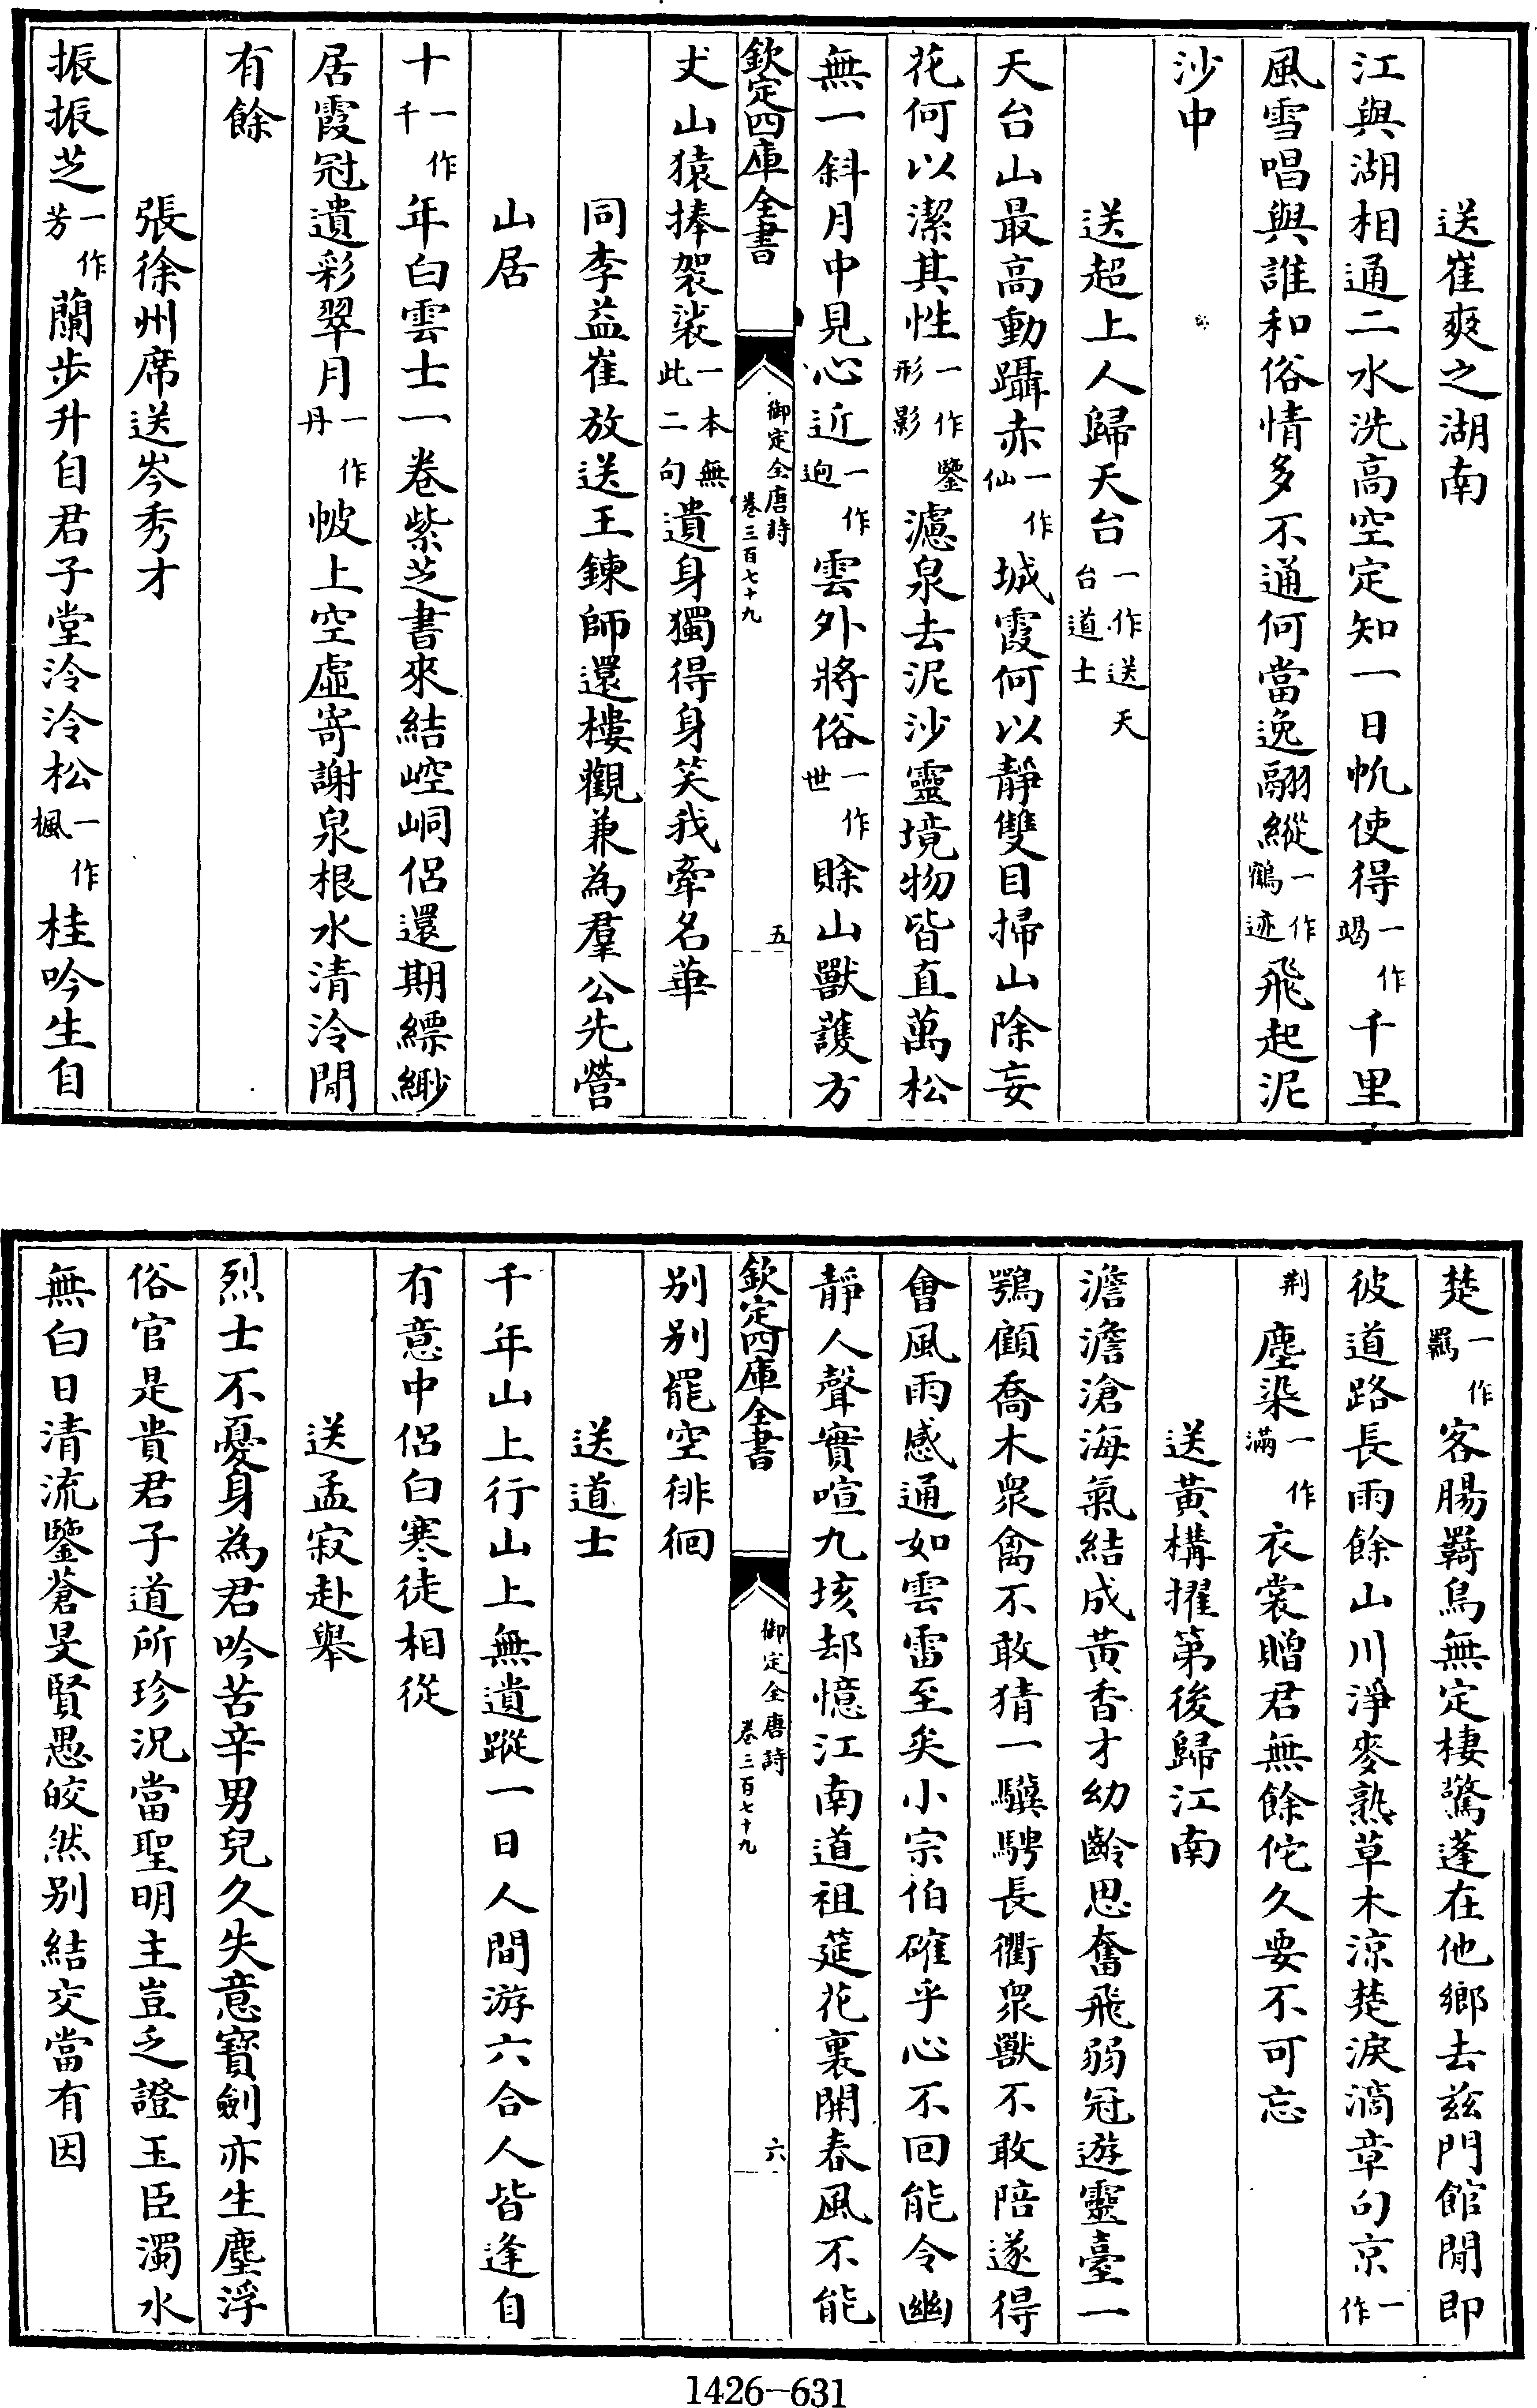 送崔爽之湖南
江與湖相通二水洗高空定知一日帆使得一作竭千里
風雪唱與誰和俗情多不通何當逸翮縱一作鶴迹飛起泥
沙中
送超上人歸天台一作送天台道士
天台山最高動躡赤一作仙城霞何以靜雙目掃山除妄
花何以潔其性一作鑒形影濾泉去泥沙靈境物皆直萬松
無一斜月中見心近一作迥雲外將俗一作世賒山獸護方
欽定四庫全書
御定全唐詩
卷三百七十九
五
丈山猿捧袈裟一本無此二句遺身獨得身笑我牽名華
同李益崔放送王鍊師還樓觀兼為羣公先營
山居
十一作千年白雲士一卷紫芝書來結崆峒侶還期縹緲
居霞冠遺彩翠月一作丹帔上空虛寄謝泉根水清泠閒
有餘
張徐州席送岑秀才
振振芝一作芳蘭步升自君子堂泠泠松一作楓桂吟生自
楚一作羈客腸羇鳥無定棲驚蓬在他鄉去兹門館閒即
彼道路長雨餘山川淨麥熟草木涼楚淚滴章句京一作
荆塵染一作滿衣裳贈君無餘佗久要不可忘
送黄構擢第後歸江南
澹澹滄海氣結成黄香才幼齡思奮飛弱冠遊靈臺一
鶚顧喬木衆禽不敢猜一驥騁長衢衆獸不敢陪遂得
會風雨感通如雲雷至矣小宗伯確乎心不回能令幽
靜人聲實喧九垓却憶江南道祖筵花裏開春風不能
欽定四庫全書
御定全唐詩
卷三百七十九
六
别别罷空徘徊
送道士
千年山上行山上無遺蹤一日人間游六合人皆逢自
有意中侶白寒徒相從
送孟寂赴舉
烈士不憂身為君吟苦辛男兒久失意寶劍亦生塵浮
俗官是貴君子道所珍況當聖明主豈乏證玉臣濁水
無白日清流鑒蒼旻賢愚皎然别結交當有因
1426-631